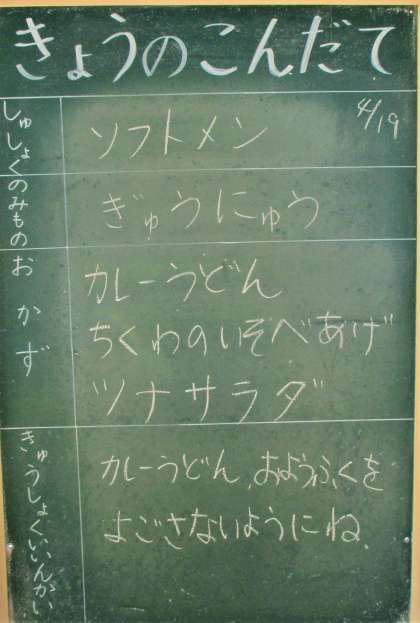 きょうのこんだて
4/19
しゅしょく
ソフトメン
のみもの
ぎゅうにゅう
おかず
カレーうどん
ちくわのいそべあげ
ツナサラダ
きゅうしょくいいんかい
カレーうどん、おようふくを
よごさないようにね、